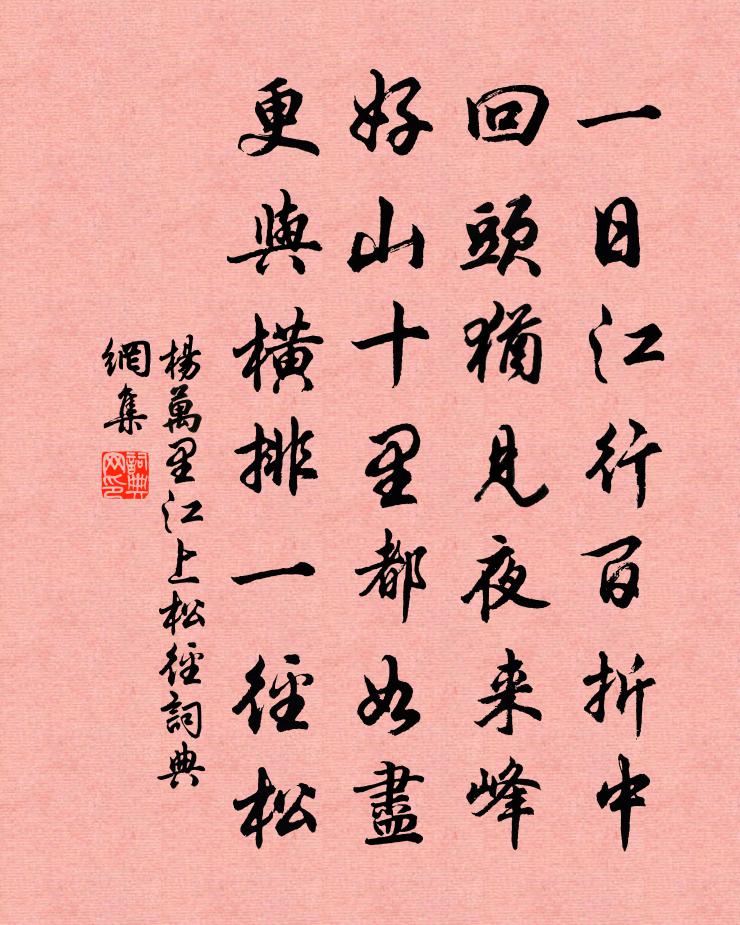 一日江行百折中
回頭猶見夜来峰
好山十里都如盡
更與橫排一徑松
楊萬里江上松徑詞典
網集
詞典
网印